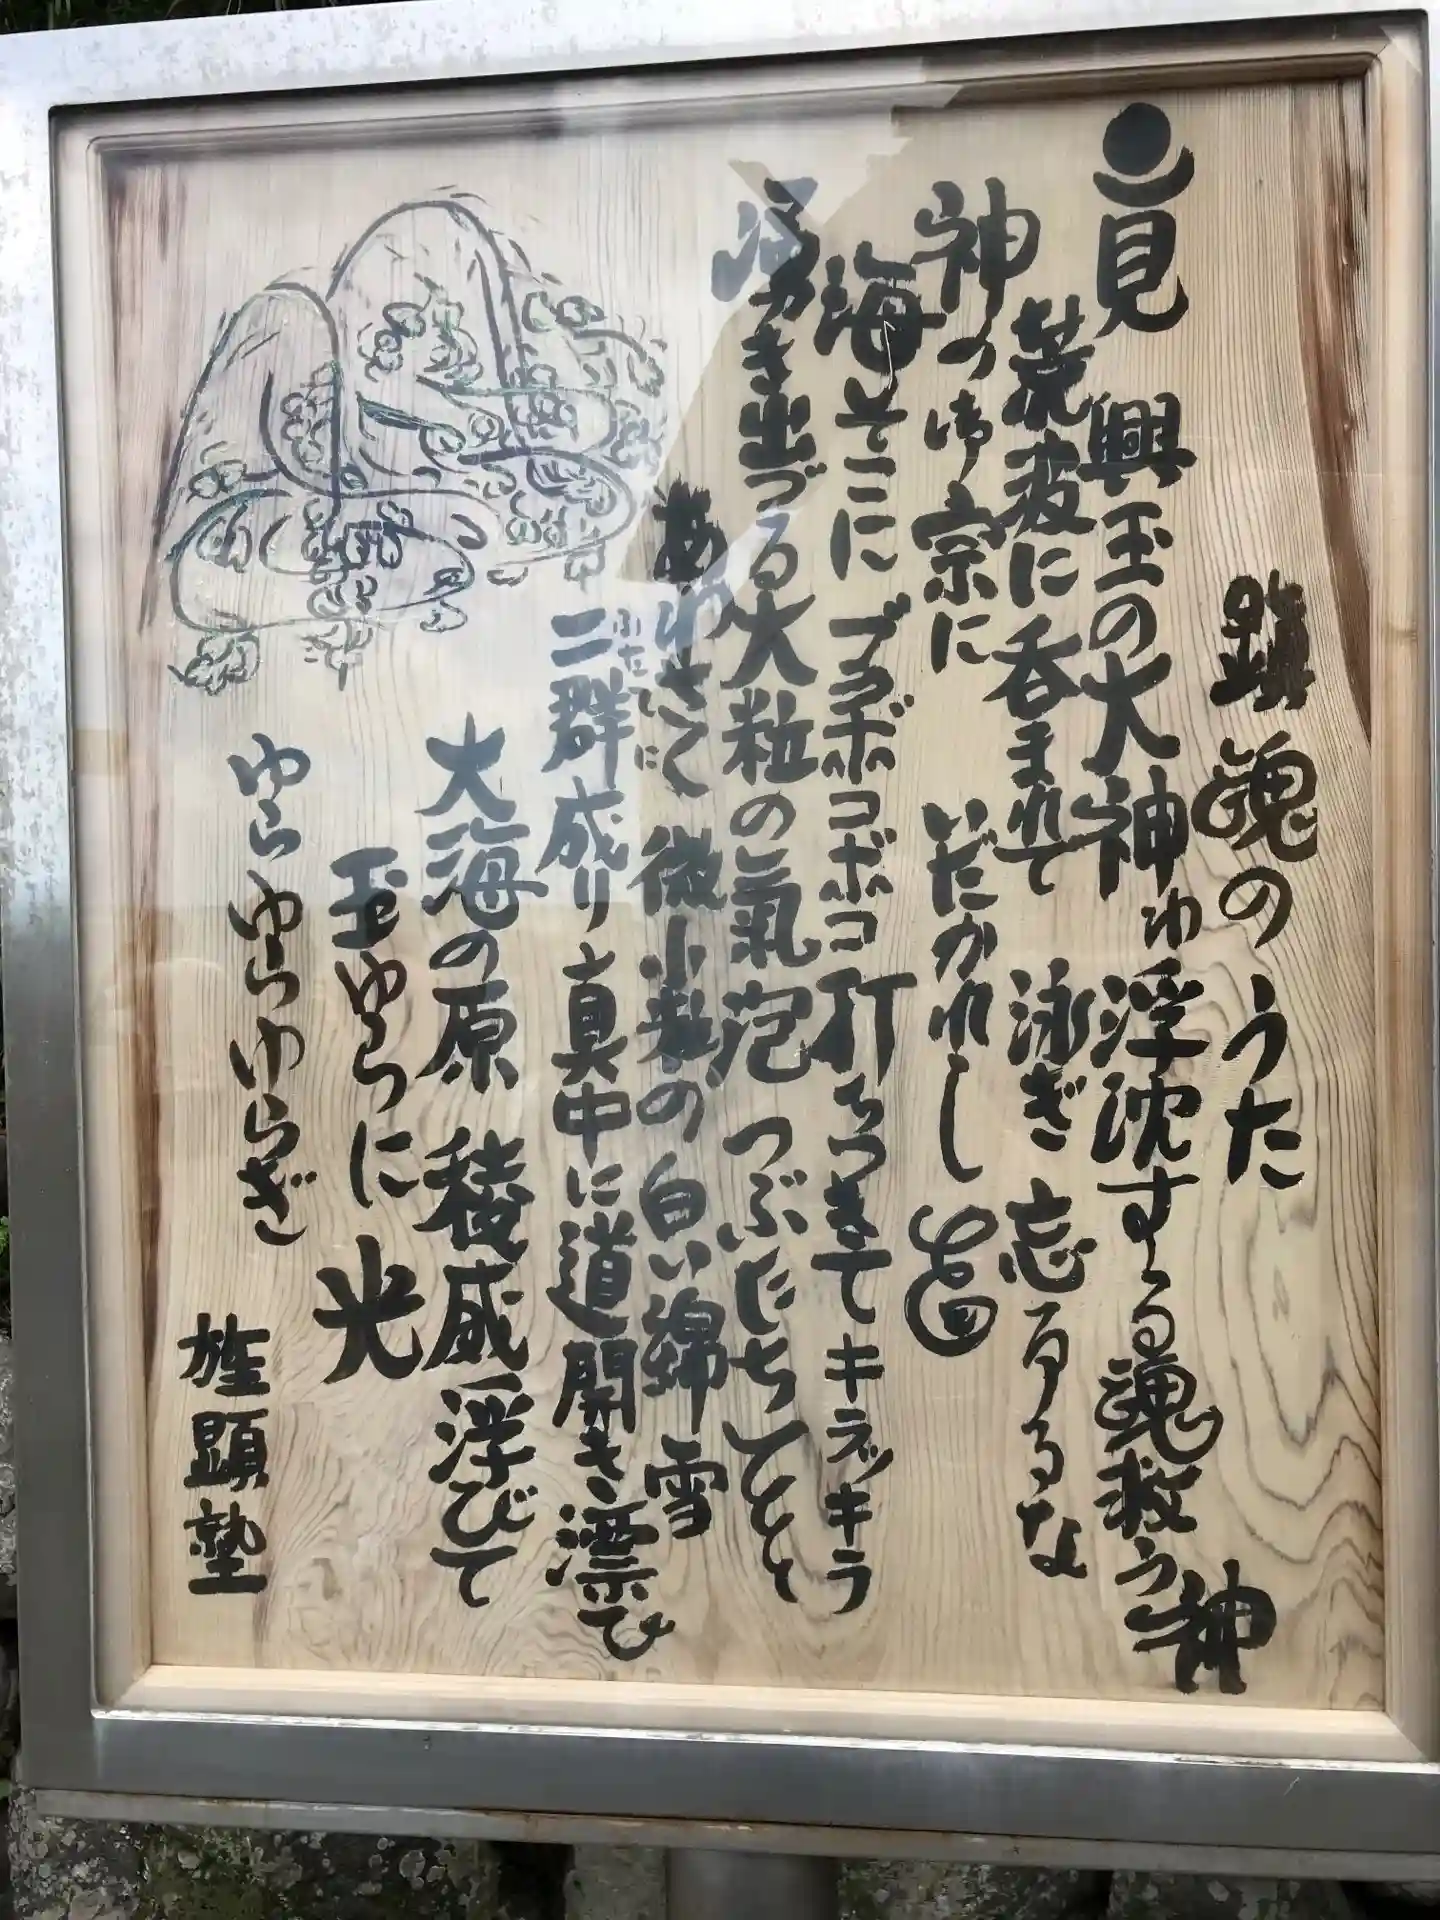 鎮魂のうた
見 興玉の大神わ浮沈する魂救う神
荒波に呑まれて 泳ぎ忘るるな
神の御宗に いだかれし
海そこに ブクボコボコ打ちつきてキラッキラ
湧き出づる大粒の氣泡 つぶだちしとと
あわさくに 微小粒の白い綿雪
二群成り真中に道開き漂ひ
ふた
大海の原 稜威浮びて
玉ゆらに 光
ゆらゆらゆらぎ
旌顕塾